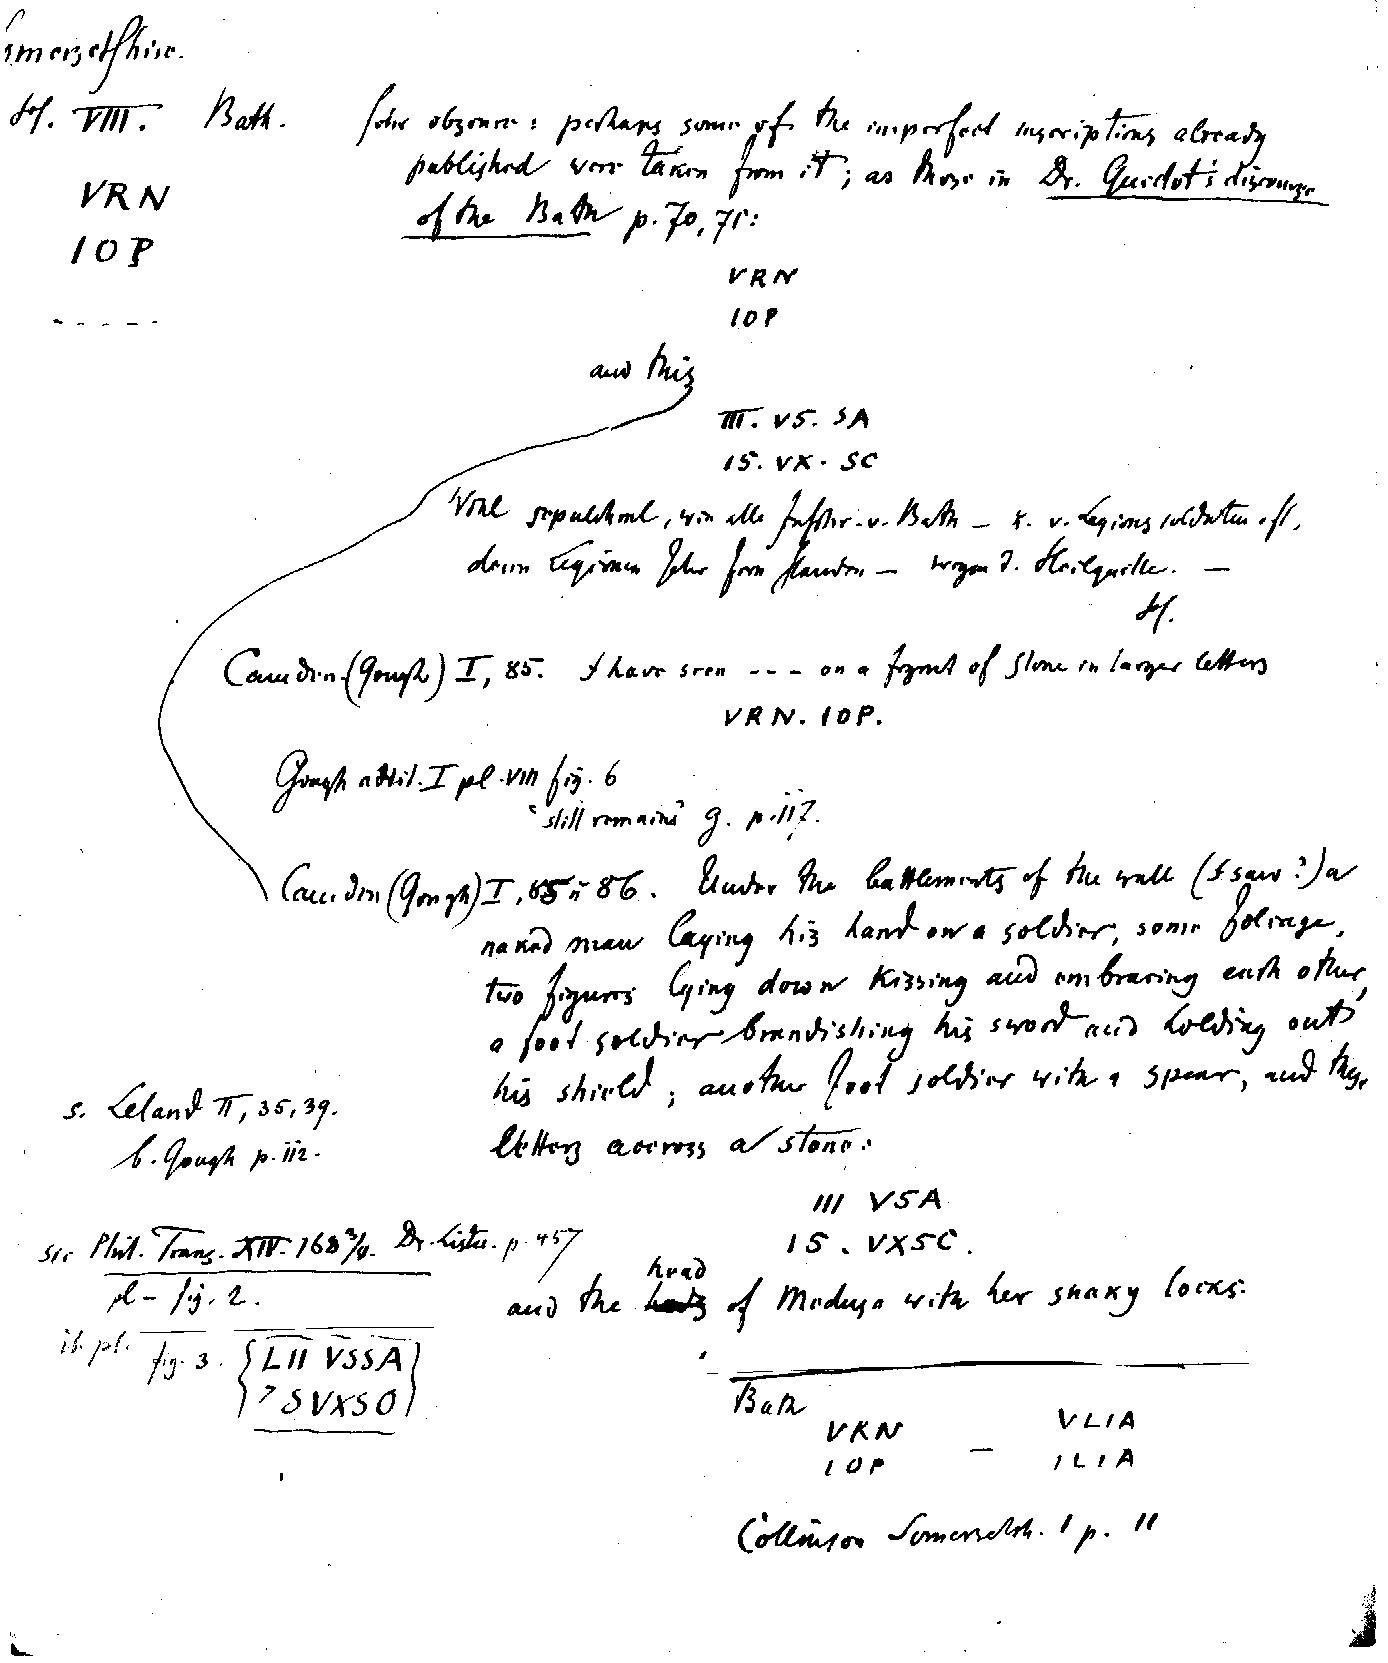 Somersetshire.
H. VIII. Bath. sehr obscure: perhaps some of the imperfect inscriptions already
published were taken from it; as those in Dr. Guidot's discourse
of the Bath p. 70, 71:
VRN
IOP
- - - - -
VRN
IOP
and this
III. VS. SA
IS. VX. SC
Wohl sepulchral, wie alle Inschr. v. Bath – v. Legionssoldaten
denn Legionen sehr fern standen – wegen d. Heilquelle. –
H.
Camden (Gough) I, 85. I have seen - - - on a fragmt of stone in larger letters
VRN. IOP.
Gough addit. I pl. VIII fig. 6
"still remains" G. p. 117.
Camden (Gough) I, 85 u 86. Under the battlements of the wall (I saw?) a
naked man laying his hand on a soldier, some foliage,
two figures lying down kissing and embracing each other,
a foot soldier brandishing his sword and holding out
his shield; another foot soldier with a spear, and these
letters across a stone:
III VSA
IS. VXSC.
and the head of Medusa with her snaky locks.
s. Leland II, 35, 39.
b. Gough p. 112.
Phil. Trans. XIV. 1683/4. Dr. Lister. p. 457
pl – fig. 2.
ib. pl. fig. 3. {LII VSSA}
{7 SVXSO}
Bath
VKN – VLIA
IOP ILIA
Collinson Somersetsh. I p. 11